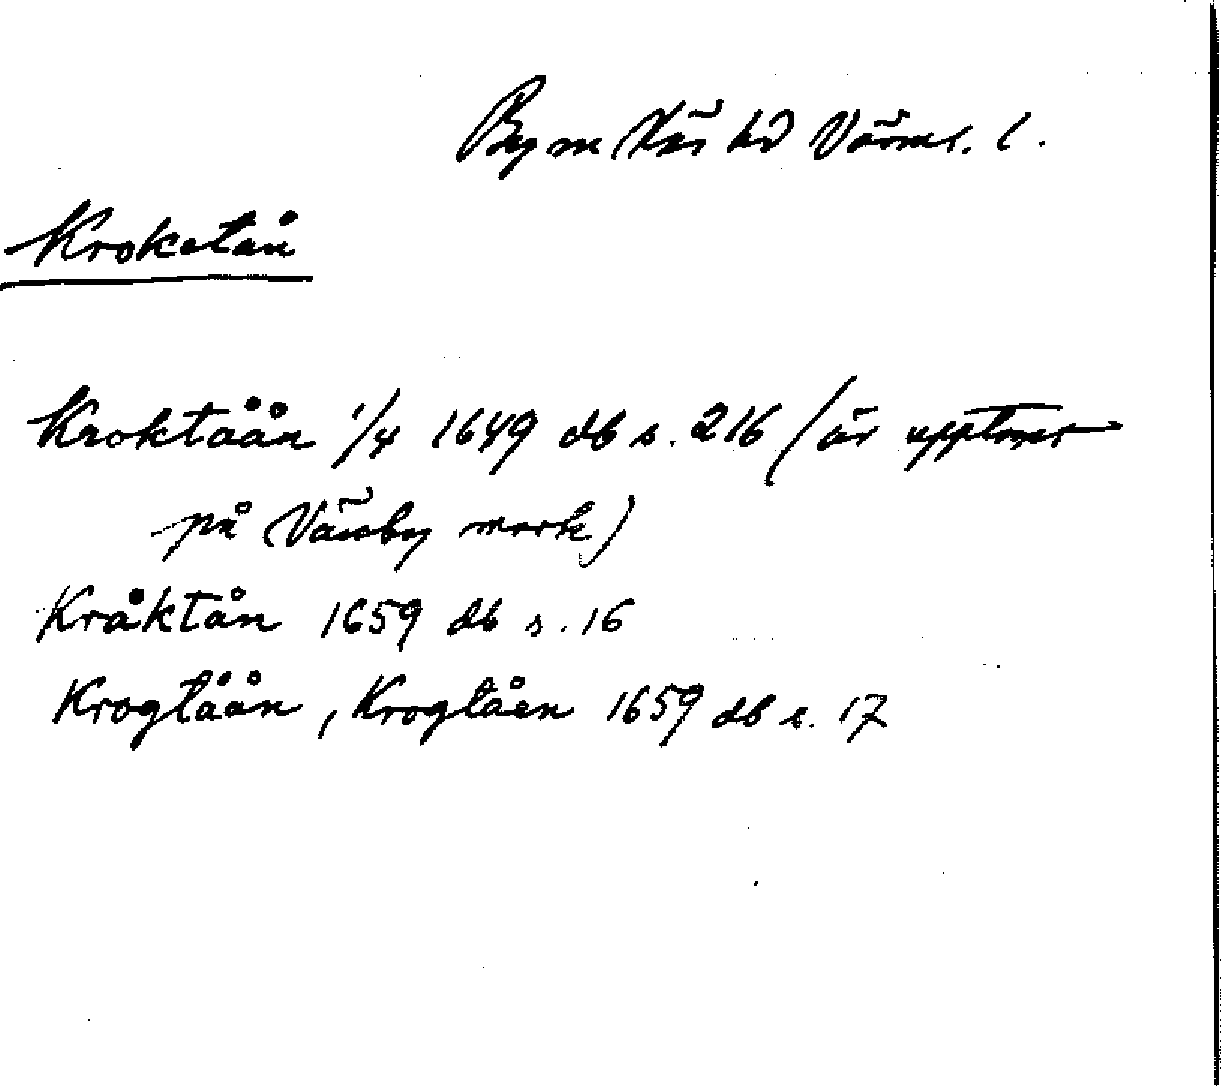 By sn Näs hd Värml. l.
Kroketån
Kroktåån 1/4 1649 db s. 216 (är upptaget
på Väseby mark)
Kråktån 1659 db s. 16
Krogtåån, Krogtåen 1659 db s. 17